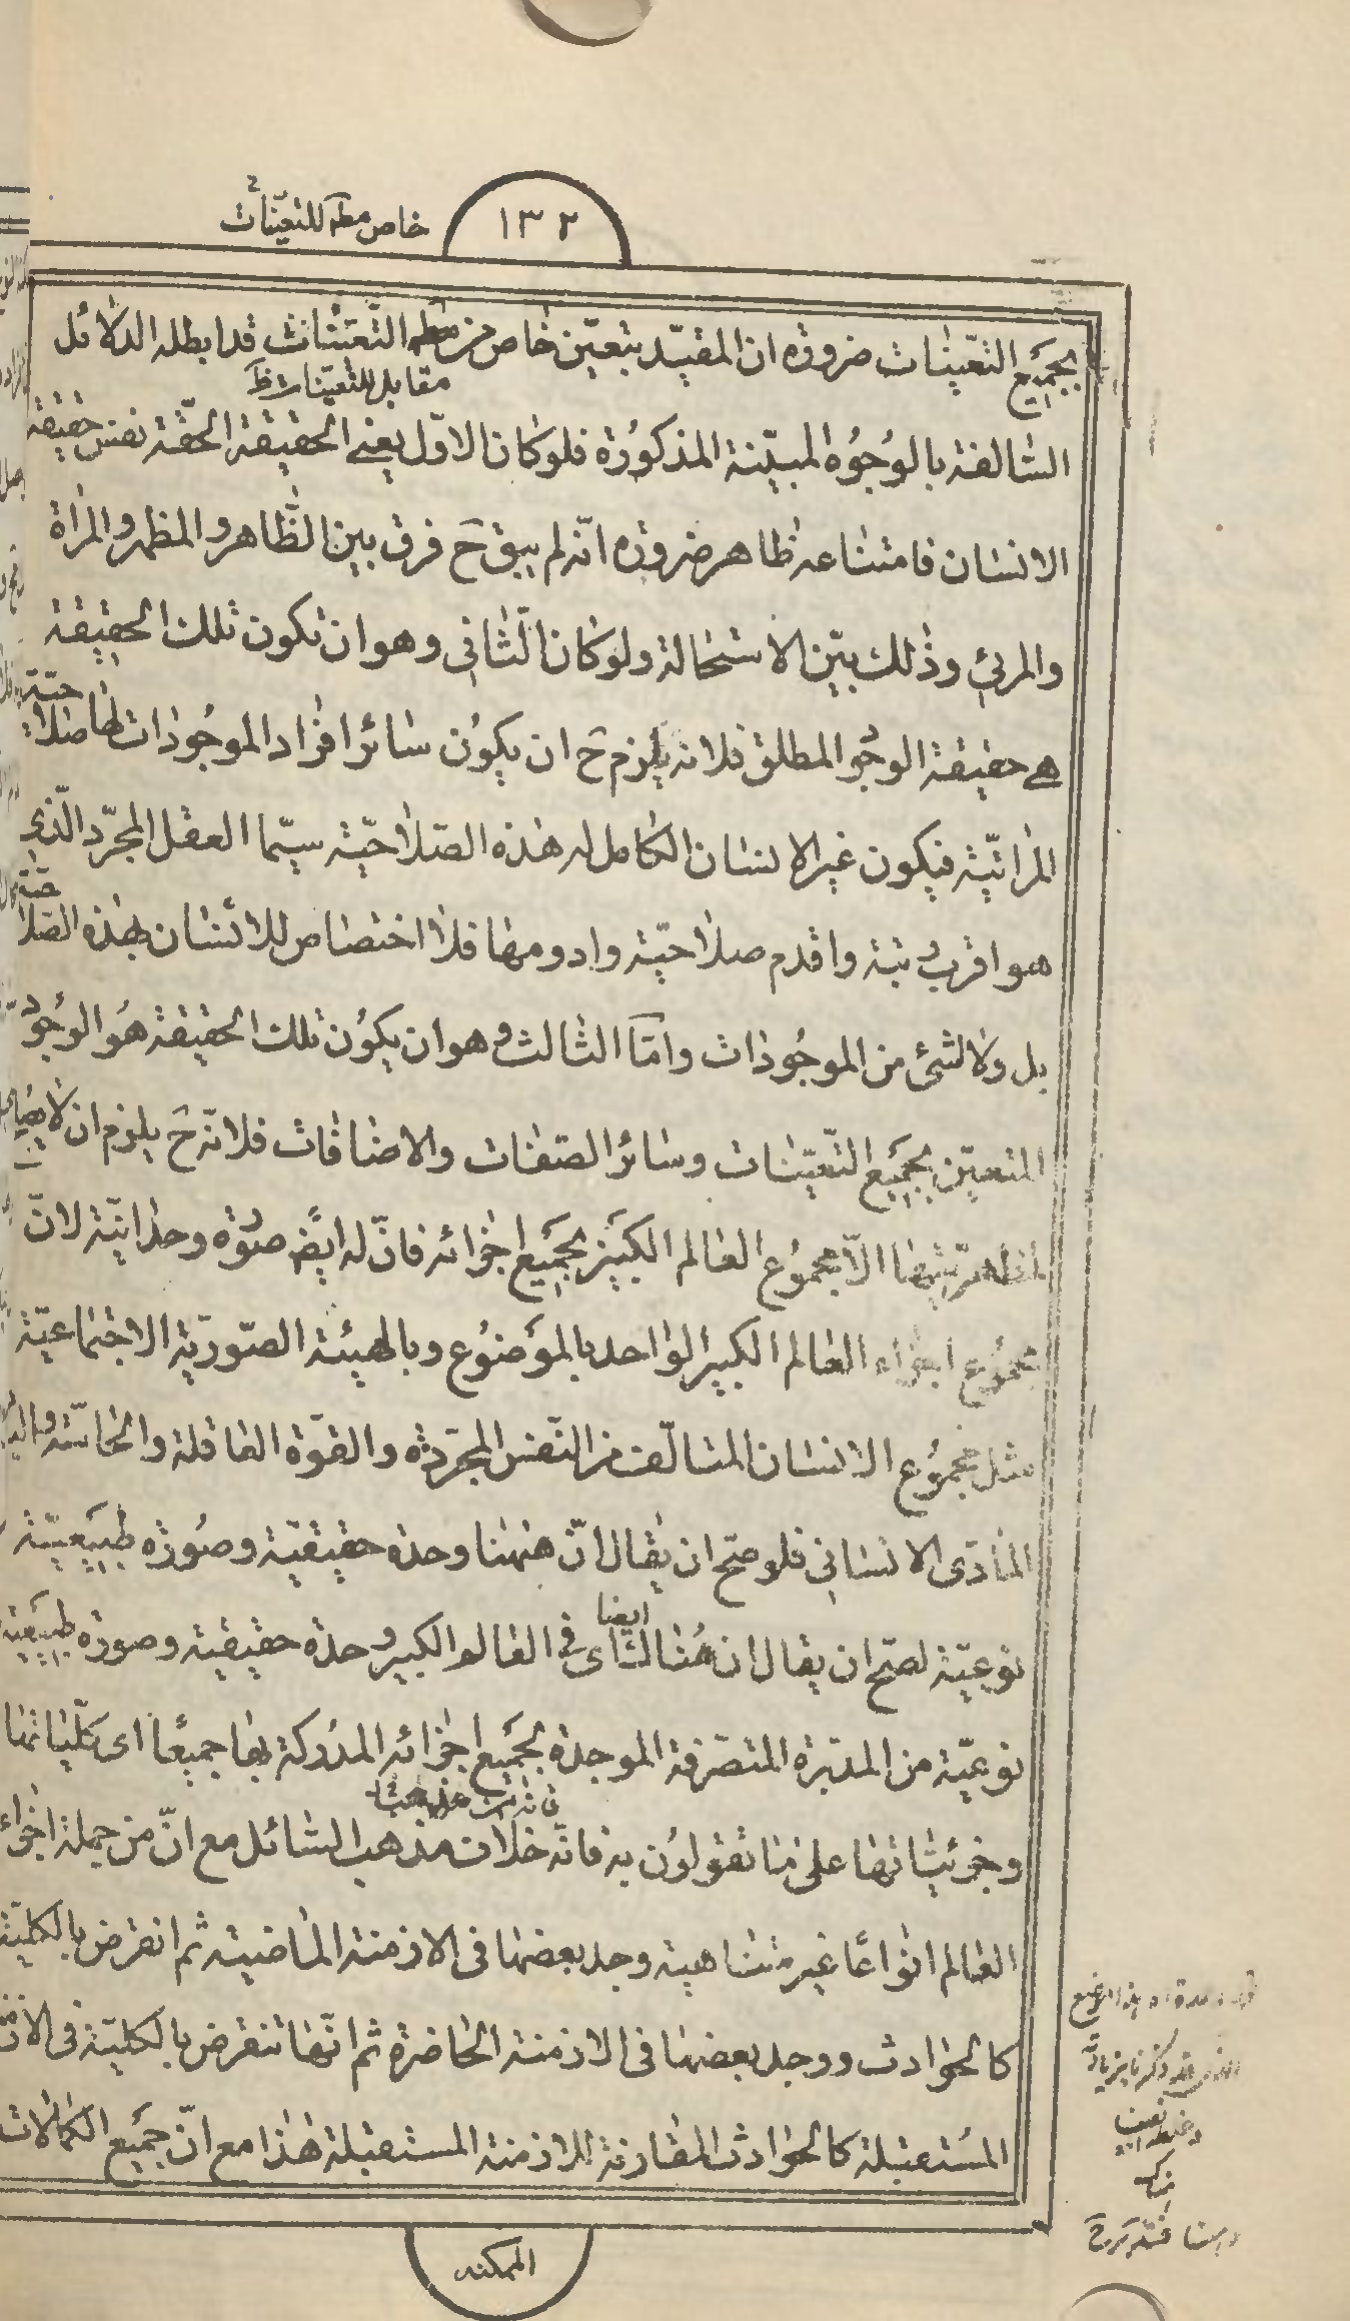 ١٣٢
خاص للتعينات
بجميع التعينات ضرورة ان المقيد بتعين خاص من التعينات قد ابطله الدلائل
مقابل للتعينات
السالفة بالوجوه المبينة المذكورة فلو كان الاول يعنى الحقيقة الحقة نفس حقيقة
الانسان فامتناعه ظاهر ضرورة انه لم يبق ح فرق بين الظاهر والمظهر والمراة
والمرئى وذلك بين الاستحالة ولو كان الثانى وهو ان تكون تلك الحقيقة
هى حقيقة الوجود المطلق فلانه يلزم ح ان يكون سائر افراد الموجودات لها صلاحية
المراتية فيكون غير الانسان الكامل له هذه الصلاحية سيما العقل المجرد الذى
هو اقرب رتبة واقدم صلاحية وادومها فلا اختصاص للانسان بهذه الصلاحية
بل ولا لشئ من الموجودات واما الثالث وهو ان يكون تلك الحقيقة هو الوجود
المتعين بجميع التعينات وسائر الصفات والاضافات فلانه ح يلزم ان لا
الا مجموع العالم الكبير بجميع اجزائه فان له ايض صورة وحدانية لان
مجموع اجزاء العالم الكبير الواحد بالموضوع وبالهيئة الصورية الاجتماعية
مثل مجموع الانسان المتالف من النفس المجردة والقوة العاقلة والحاسة
المادى الانسانى فلو صح ان يقال ان ههنا وحدة حقيقية وصورة طبيعية
نوعية لصح ان يقال ان هناك ايضا اى فى العالم الكبير وحدة حقيقية وصورة طبيعية
نوعية من المدبرة المتصرفة الموجدة بجميع اجزائه المدركة بها جميعا اى كلياتها
وجزئياتها على ما تقولون به فانه خلاف مذهب السائل مع ان من جملة اجزاء
العالم انواعا غير متناهية وجد بعضها فى الازمنة الماضية ثم انقرض بالكلية
كالحوادث ووجد بعضها فى الازمنة الحاضرة ثم انها تنقرض بالكلية فى
المستقبلة كالحوادث المقارنة للازمنة المستقبلة هذا مع ان جميع الكمالات
الممكنه